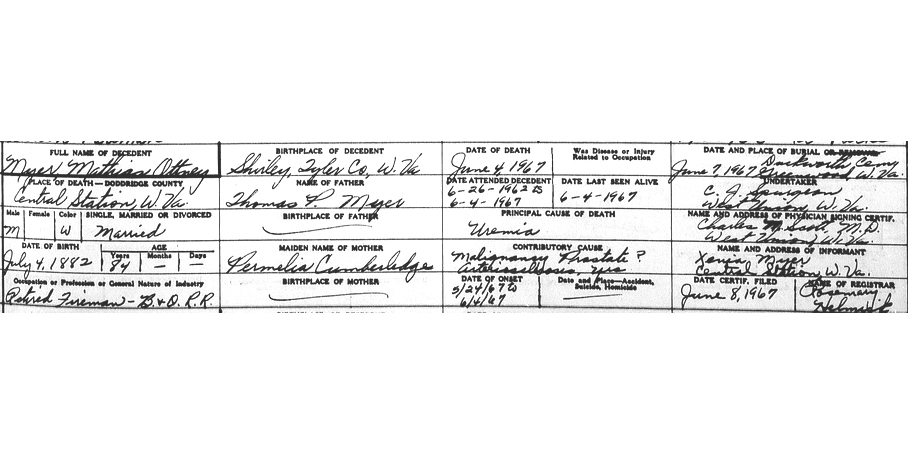 FULL NAME OF DECEDENT
Myer Mathias Ottney
PLACE OF DEATH — DODDRIDGE COUNTY
Central Station, W. Va.
Male Female Color SINGLE, MARRIED OR DIVORCED
M W Married
DATE OF BIRTH AGE
July 4, 1882 Years 84 Months — Days —
Occupation or Profession or General Nature of Industry
Retired Fireman - B & O. R. R.
BIRTHPLACE OF DECEDENT
Shirley, Tyler Co, W. Va
NAME OF FATHER
Thomas Myer
BIRTHPLACE OF FATHER
MAIDEN NAME OF MOTHER
Permelia Cumberledge
BIRTHPLACE OF MOTHER
DATE OF DEATH
June 4, 1967
Was Disease or Injury
Related to Occupation
DATE ATTENDED DECEDENT
6-26-1962 to
6-4-1967
DATE LAST SEEN ALIVE
6-4-1967
PRINCIPAL CAUSE OF DEATH
Uremia
CONTRIBUTORY CAUSE
Malignancy Prostate ?
yes
DATE OF ONSET
5/24/67 to
6/4/67
Date and Place—Accident,
Suicide, Homicide
DATE AND PLACE OF BURIAL OR REMOVED
Duckworth Cemy
June 7, 1967 Greenwood W. Va.
UNDERTAKER
C. J. Spurgeon
West Union, W. Va.
NAME AND ADDRESS OF PHYSICIAN SIGNING CERTIF.
Charles M. Scott, M. D.
West Union, W. Va.
NAME AND ADDRESS OF INFORMANT
Xenia Myer
Central Station, W. Va.
DATE CERTIF. FILED
June 8, 1967
NAME OF REGISTRAR
Rosemary
Helmick